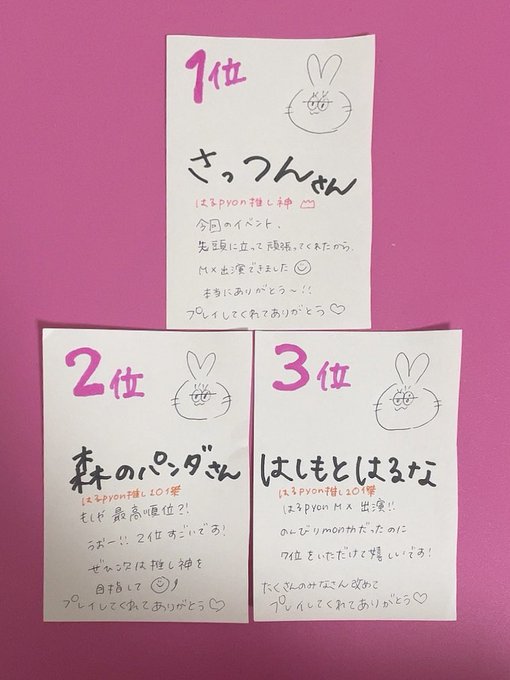 1位
さっつんさん
はるpyon推し神
今回のイベント、
先頭に立って頑張ってくれたから、
MX出演できました
本当にありがとう〜!!
プレイしてくれてありがとう♡
2位
森のパンダさん
はるpyon推し20傑
もしや最高順位?!
うおー!! 2位すごいです!
ぜひ次は推し神を
目指して
プレイしてくれてありがとう♡
3位
はしもとはるな
はるpyon推し20傑
はるpyon MX 出演!!
のんびりmonthだったのに
7位をいただけて嬉しいです!
たくさんのみなさん改めて
プレイしてくれてありがとう♡